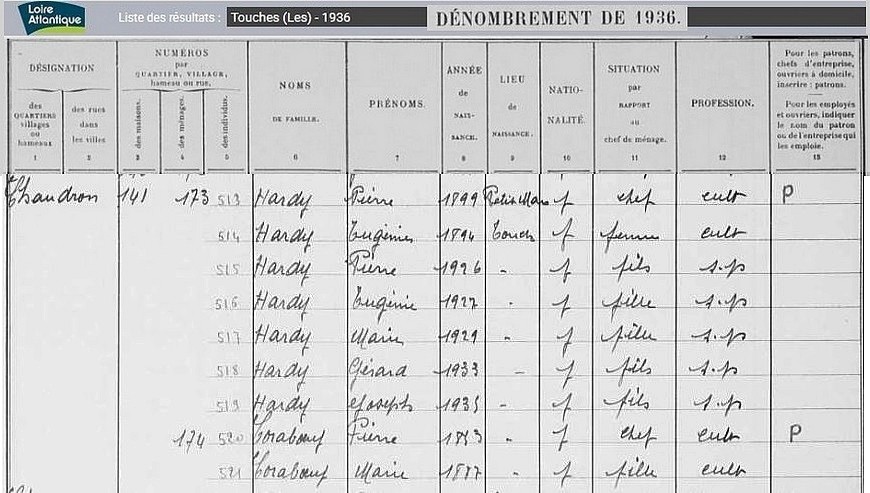 Loire
Atlantique
Liste des résultats : Touches (Les) - 1936
DÉNOMBREMENT DE 1936.
DÉSIGNATION
des QUARTIERS villages ou hameaux
des rues dans les villes
NUMÉROS par QUARTIER, VILLAGE, hameau ou rue.
des maisons.
des ménages.
des individus.
NOMS DE FAMILLE.
PRÉNOMS.
ANNÉE de NAIS-SANCE.
LIEU de NAISSANCE.
NATIO-NALITÉ.
SITUATION par RAPPORT au chef de ménage.
PROFESSION.
Pour les patrons, chefs d'entreprise, ouvriers à domicile, inscrire : patrons.
Pour les employés et ouvriers, indiquer le nom du patron ou de l'entreprise qui les emploie.
1 2 3 4 5 6 7 8 9 10 11 12 13
Chaudron 141 173 513 Hardy Pierre 1899 Petit Mars f chef cult P
514 Hardy Eugénie 1894 Touch f femme cult
515 Hardy Pierre 1926 - f fils s.p
516 Hardy Eugénie 1927 - f fille s.p
517 Hardy Marie 1929 - f fille s.p
518 Hardy Gérard 1933 - f fils s.p
519 Hardy Joseph 1935 - f fils s.p
174 520 Corabœuf Pierre 1853 - f chef cult P
521 Corabœuf Marie 1887 - f fille cult